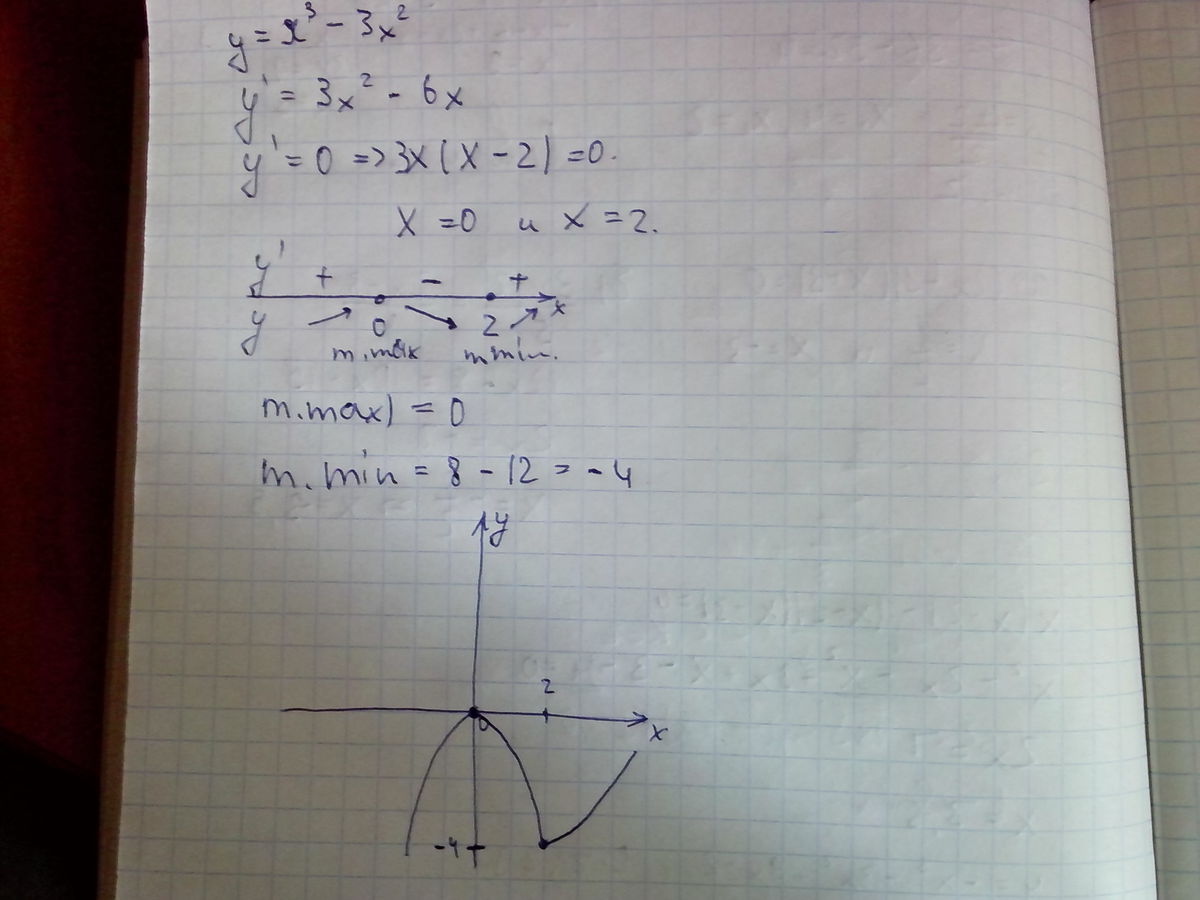 y = x³ - 3x²
y' = 3x² - 6x
y' = 0 => 3x(x - 2) = 0.
x = 0 и x = 2.
y' + - +
y 0 2 x
т. max т. min.
т. max) = 0
т. min = 8 - 12 = -4
y
2
0
x
-4